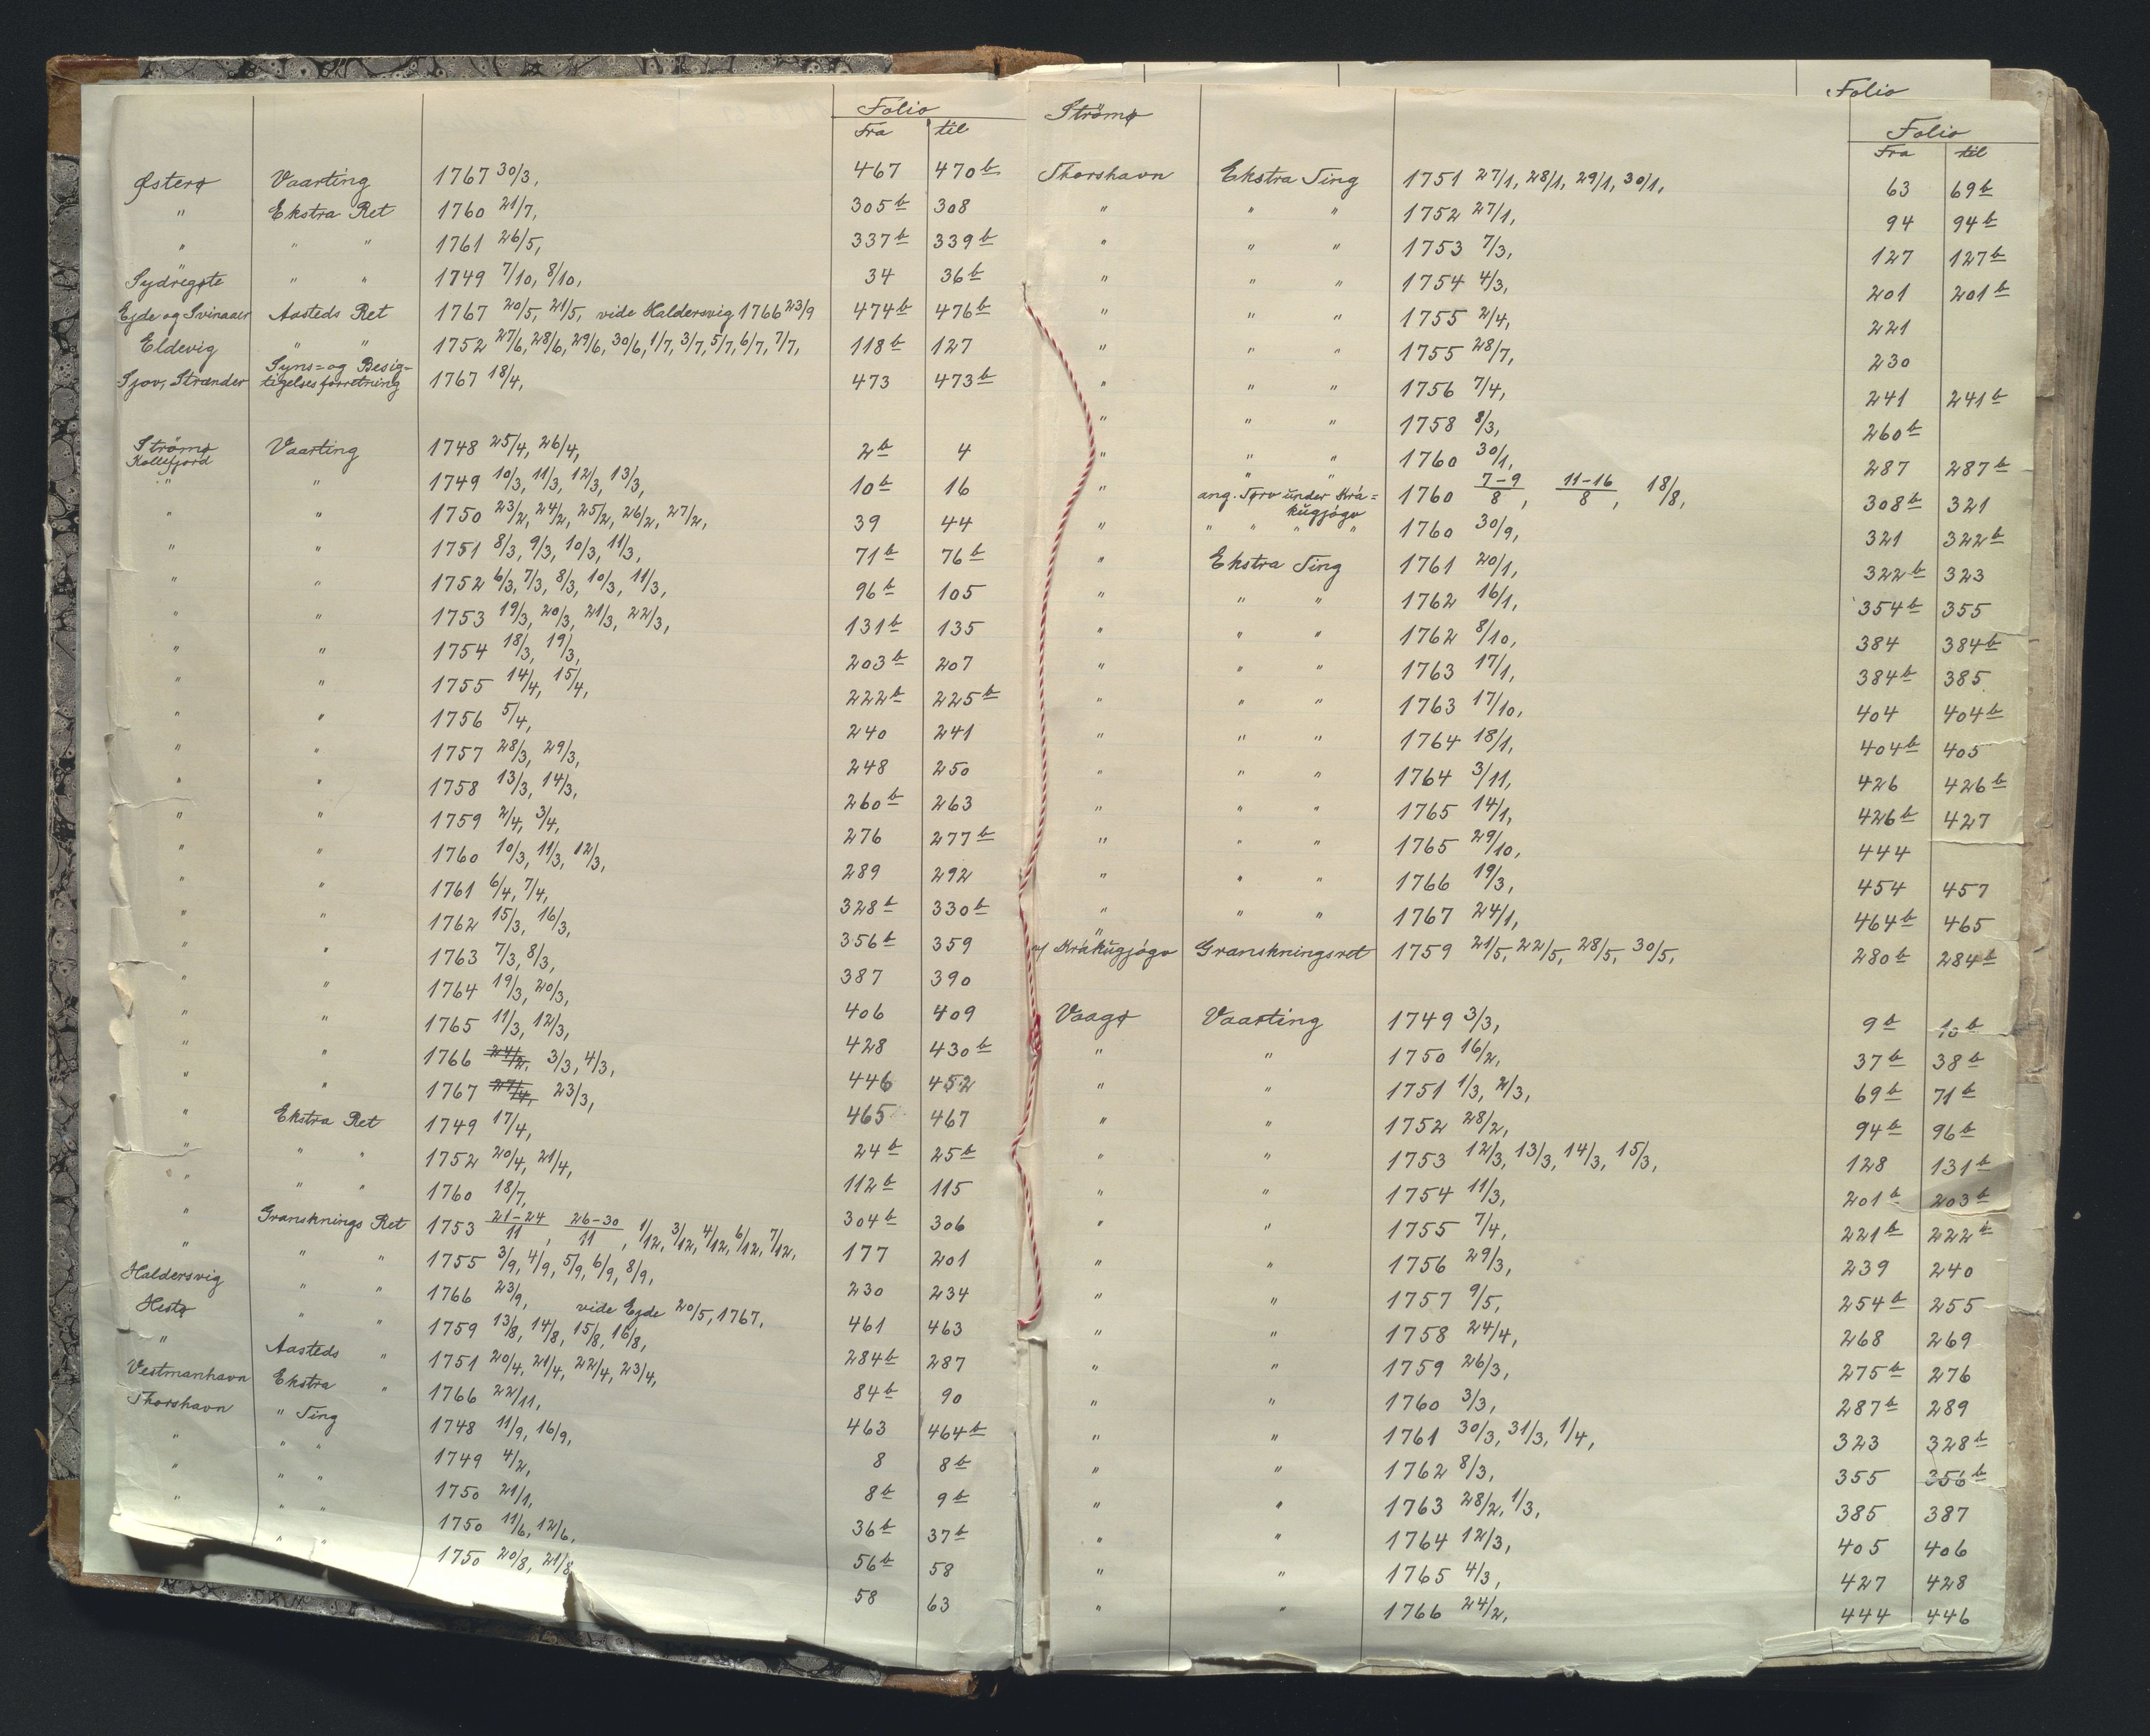 Folio
Fra til
Østerø Vaarting 1767 30/3, 467 470b
" Ekstra Ret 1760 21/7, 305b 308
" " " 1761 26/5, 337b 339b
Sydregøte " " 1749 7/10, 8/10, 34 36b
Ejde og Svinaaer Aasteds Ret 1767 20/5, 21/5, vide Haldersvig 1766 23/9 474b 476b
Eldevig " " 1752 27/6, 28/6, 29/6, 30/6, 1/7, 3/7, 5/7, 6/7, 7/7, 118b 127
Syns=og Besig=
Sjov, Strænder tigelsesforretning 1767 18/4, 473 473b
Strömø
Kollefjord Vaarting 1748 25/4, 26/4, 2b 4
" " 1749 10/3, 11/3, 12/3, 13/3, 10b 16
" " 1750 23/2, 24/2, 25/2, 26/2, 27/2, 39 44
" " 1751 8/3, 9/3, 10/3, 11/3, 71b 76b
" " 1752 6/3, 7/3, 8/3, 10/3, 11/3, 96b 105
" " 1753 19/3, 20/3, 21/3, 22/3, 131b 135
" " 1754 18/3, 19/3, 203b 207
" " 1755 14/4, 15/4, 222b 225b
" " 1756 5/4, 240 241
" " 1757 28/3, 29/3, 248 250
" " 1758 13/3, 14/3, 260b 263
" " 1759 2/4, 3/4, 276 277b
" " 1760 10/3, 11/3, 12/3, 289 292
" " 1761 6/4, 7/4, 328b 330b
" " 1762 15/3, 16/3, 356b 359
" " 1763 7/3, 8/3, 387 390
" " 1764 19/3, 20/3, 406 409
" " 1765 11/3, 12/3, 428 430b
" " 1766 24/2, 3/3, 4/3, 446 452
" " 1767 23/3, 465 467
" Ekstra Ret 1749 17/4, 24b 25b
" " " 1752 20/4, 21/4, 112b 115
" " " 1760 18/7, 304b 306
" Gransknings Ret 1753 21-24/11, 26-30/11, 1/12, 3/12, 4/12, 6/12, 7/12, 177 201
" " " 1755 3/9, 4/9, 5/9, 6/9, 8/9, 230 234
Haldersvig " " 1766 23/9, vide Ejde 20/5, 1767, 461 463
Hestø " " 1759 13/8, 14/8, 15/8, 16/8, 284b 287
" Aasteds " 1751 20/4, 21/4, 22/4, 23/4, 84b 90
Vestmanhavn Ekstra " 1766 22/11, 463 464b
Thorshavn " Ting 1748 11/9, 16/9, 8 8b
" " " 1749 4/2, 8b 9b
" " " 1750 21/1, 36b 37b
" " " 1750 11/6, 12/6, 56b 58
" " 1750 20/8, 21/8 58 63
Folio
Strömø Folio
Fra til
Thorshavn Ekstra Ting 1751 27/1, 28/1, 29/1, 30/1, 63 69b
" " " 1752 27/1, 94 94b
" " " 1753 7/3, 127 127b
" " " 1754 4/3, 201 201b
" " " 1755 2/4, 221
" " " 1755 28/7, 230
" " " 1756 7/4, 241 241b
" " " 1758 8/3, 260b
" " " 1760 30/1, 287 287b
" " "
ang. Tørv under Krá= 1760 7-9/8, 11-16/8, 18/8, 308b 321
kŭgjógv
" " " " " 1760 30/9, 321 322b
" Ekstra Ting 1761 20/1, 322b 323
" " " 1762 16/1, 354b 355
" " " 1762 8/10, 384 384b
" " " 1763 17/1, 384b 385
" " " 1763 17/10, 404 404b
" " " 1764 18/1, 404b 405
" " " 1764 3/11, 426 426b
" " " 1765 14/1, 426b 427
" " " 1765 29/10, 444
" " " 1766 19/3, 454 457
" " " 1767 24/1, 464b 465
"
v/ Krákŭgjógv Granskningsret 1759 21/5, 22/5, 28/5, 30/5, 280b 284b
Vaagø Vaarting 1749 3/3, 9b 10b
" " 1750 16/2, 37b 38b
" " 1751 1/3, 2/3, 69b 71b
" " 1752 28/2, 94b 96b
" " 1753 12/3, 13/3, 14/3, 15/3, 128 131b
" " 1754 11/3, 201b 203b
" " 1755 7/4, 221b 222b
" " 1756 29/3, 239 240
" " 1757 9/5, 254b 255
" " 1758 24/4, 268 269
" " 1759 26/3, 275b 276
" " 1760 3/3, 287b 289
" " 1761 30/3, 31/3, 1/4, 323 328b
" " 1762 8/3, 355 356b
" " 1763 28/2, 1/3, 385 387
" " 1764 12/3, 405 406
" " 1765 4/3, 427 428
" " 1766 24/2, 444 446